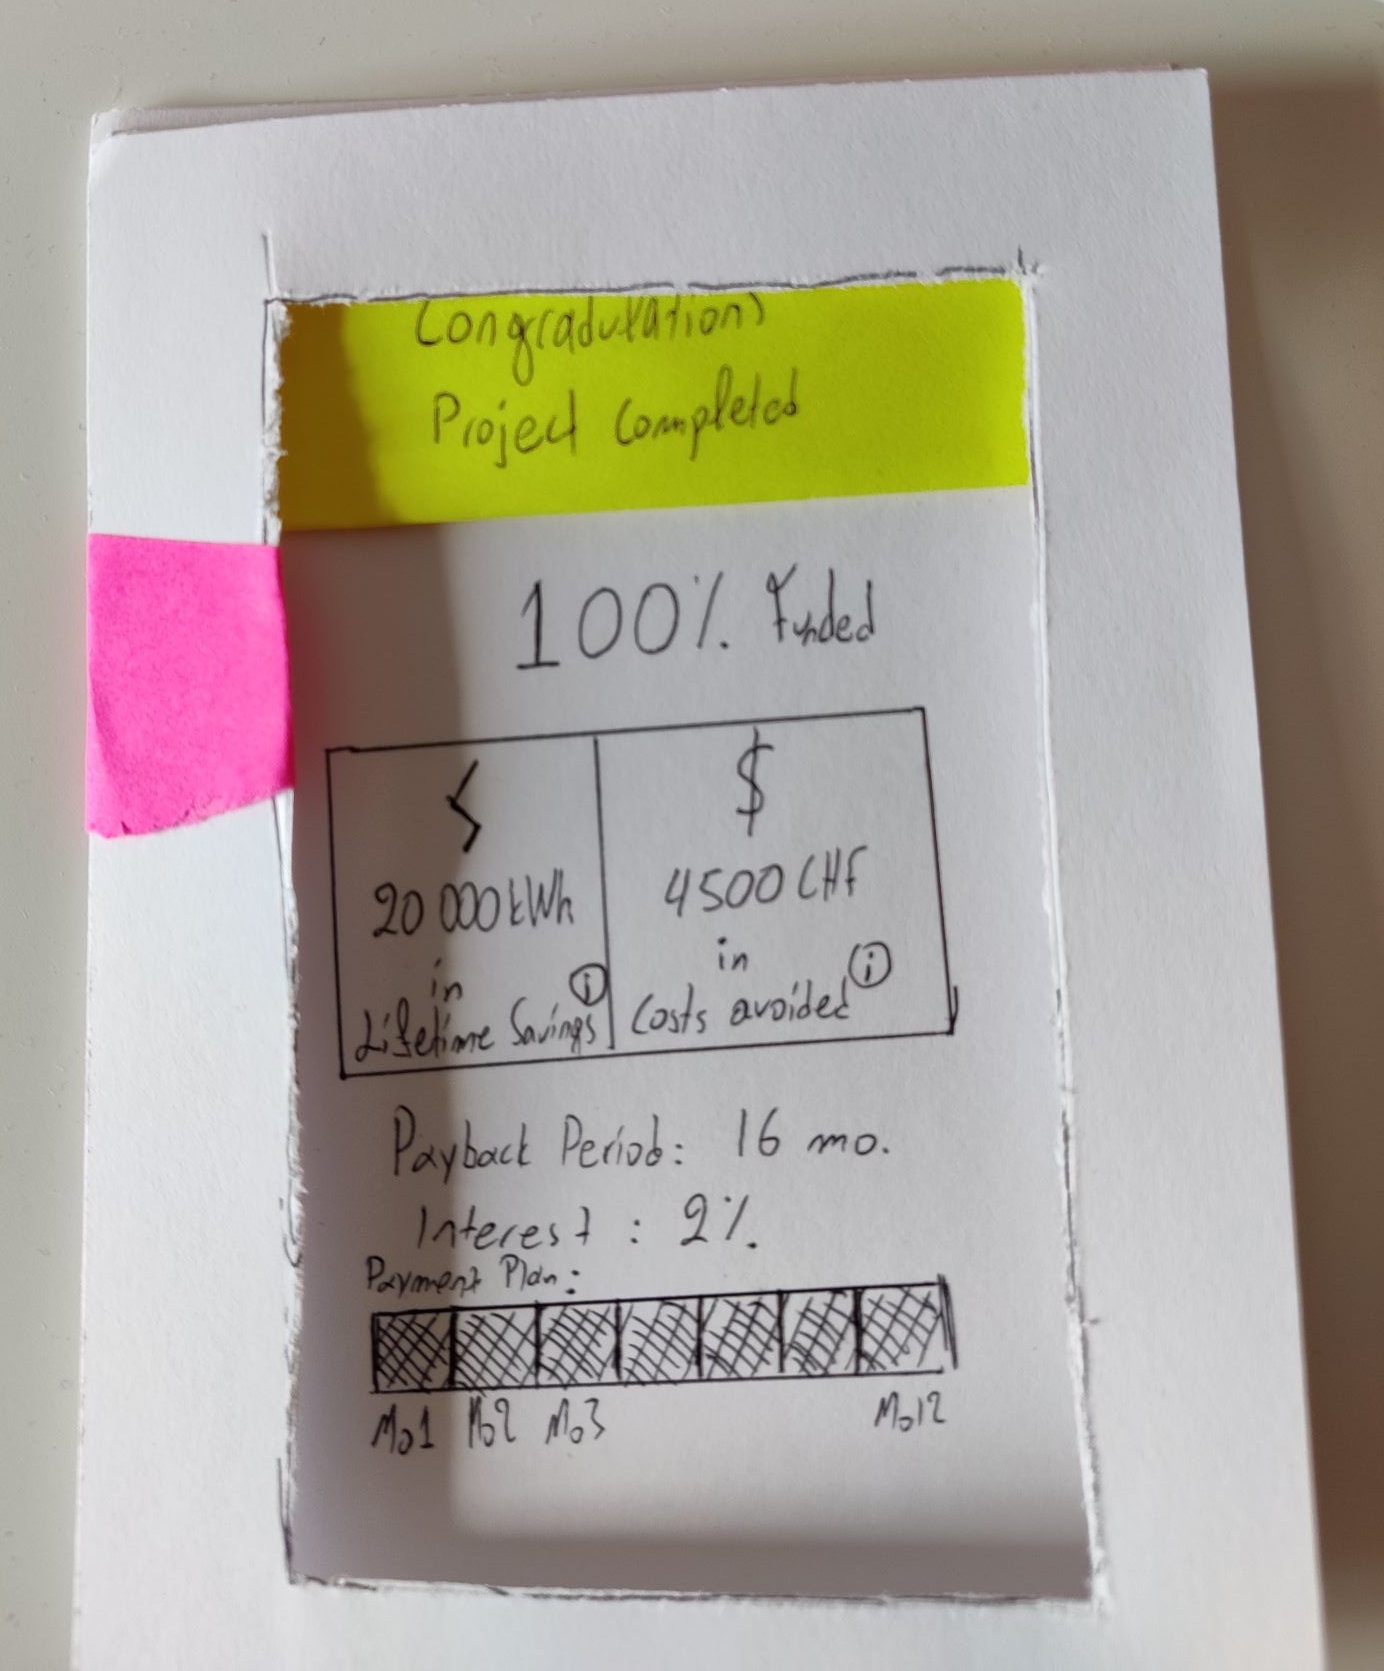 Congradulations
Project Completed
100% Funded
$
20 000 kWh
in
Lifetime Savings i
4500 CHF
in
Costs avoided i
Payback Period: 16 mo.
Interest : 2%.
Payment Plan:
Mo1 Mo2 Mo3 Mo12